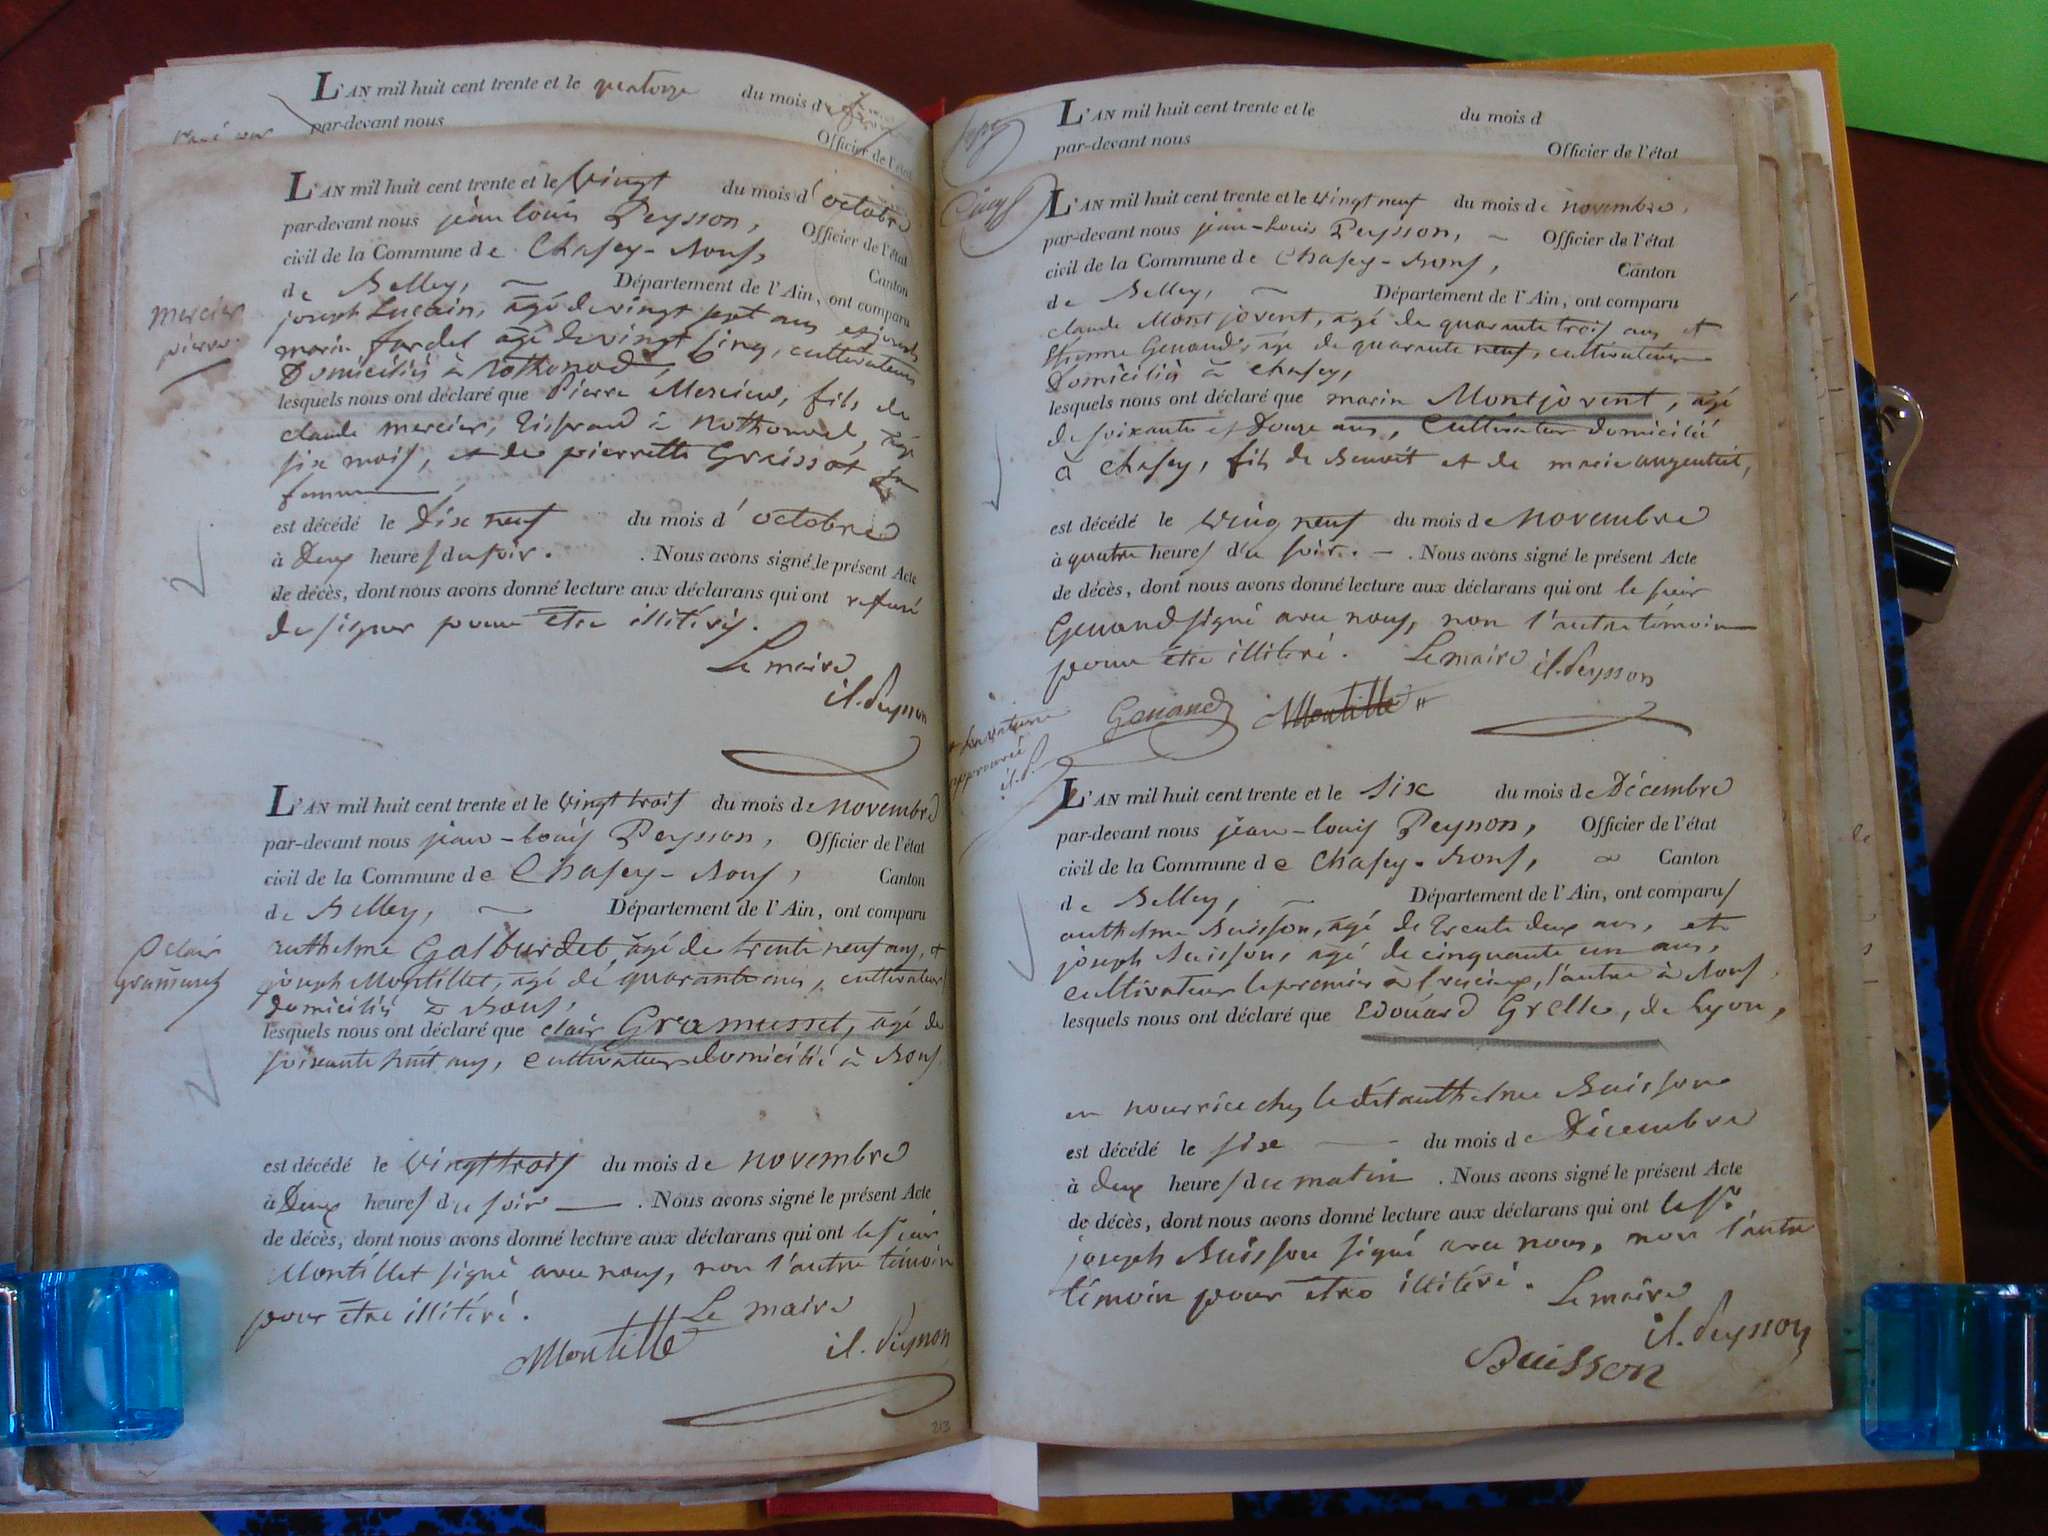 L'AN mil huit cent trente et le quatorze du mois d
par-devant nous
Officier de l'état
L'AN mil huit cent trente et le Vingt du mois d'octobre
par-devant nous jean louis Peysson, Officier de l'état
civil de la Commune de Chasey-Bons, Canton
de Belley, Département de l'Ain, ont comparu
joseph Lucain, âgé de vingt sept ans et
marin fardel âgé de vingt sinq, cultivateurs
Domiciliés à Rothonod,
mercier
pierre.
lesquels nous ont déclaré que Pierre Mercier, fils de
claude mercier, Tisserand à Rothonod, âgé
six mois, et de pierrette Graissot sa
femme
est décédé le Dix neuf du mois d'octobre
à Deux heures du soir. . Nous avons signé le présent Acte
de décès, dont nous avons donné lecture aux déclarans qui ont refusé
de signer pour être illitérés.
Le maire
jl. Peysson
L'AN mil huit cent trente et le Vingt trois du mois de novembre
par-devant nous jean-louis Peysson, Officier de l'état
civil de la Commune de Chasey-Bons, Canton
de Belley, Département de l'Ain, ont comparu
anthelme Galburdet, âgé de trente neuf ans, et
joseph Montillet, âgé de quarante ans, cultivateurs
domiciliés à Bons,
clair
gramusset
lesquels nous ont déclaré que clair Gramusset, âgé de
soixante huit ans, cultivateur domicilié à Bons,
est décédé le Vingt trois du mois de novembre
à Deux heures du soir . Nous avons signé le présent Acte
de décès, dont nous avons donné lecture aux déclarans qui ont le sieur
Montillet signé avec nous, non l'autre témoin
pour être illitéré.
Le maire
Montillet
jl. Peysson
213
L'AN mil huit cent trente et le du mois d
par-devant nous Officier de l'état
L'AN mil huit cent trente et le vingt neuf du mois de novembre,
par-devant nous jean-Louis Peysson, Officier de l'état
civil de la Commune de Chasey-Bons, Canton
de Belley, Département de l'Ain, ont comparu
claude Montjovent, âgé de quarante trois ans et
Etienne Genand, âgé de quarante neuf, cultivateurs
Domiciliés à Chasey,
lesquels nous ont déclaré que marin Montjovent, âgé
de soixante et Douze ans, Cultivateur domicilié
à Chasey, fils de Benoit et de marie augentit,
est décédé le Ving neuf du mois de Novembre
à quatre heures du soir. . Nous avons signé le présent Acte
de décès, dont nous avons donné lecture aux déclarans qui ont le sieur
Genand signé avec nous, non l'autre témoin
pour être illitéré. Le maire jl. Peysson
Genand Montille
approuvée
jl. P.
L'AN mil huit cent trente et le six du mois de Décembre
par-devant nous jean-louis Peysson, Officier de l'état
civil de la Commune de Chasey-Bons, Canton
de Belley, Département de l'Ain, ont comparus
anthelme Buisson, âgé de trente deux ans, et
joseph Buisson, âgé de cinquante un ans,
cultivateurs le premier à , l'autre à Bons,
lesquels nous ont déclaré que Edouard Grelle, de Lyon,
en nourrice chez le dit anthelme Buisson
est décédé le six du mois de Décembre
à deux heures du matin . Nous avons signé le présent Acte
de décès, dont nous avons donné lecture aux déclarans qui ont le Sr
joseph Buisson signé avec nous, non l'autre
témoin pour être illitéré.
Le maire
jl. Peysson
Buisson